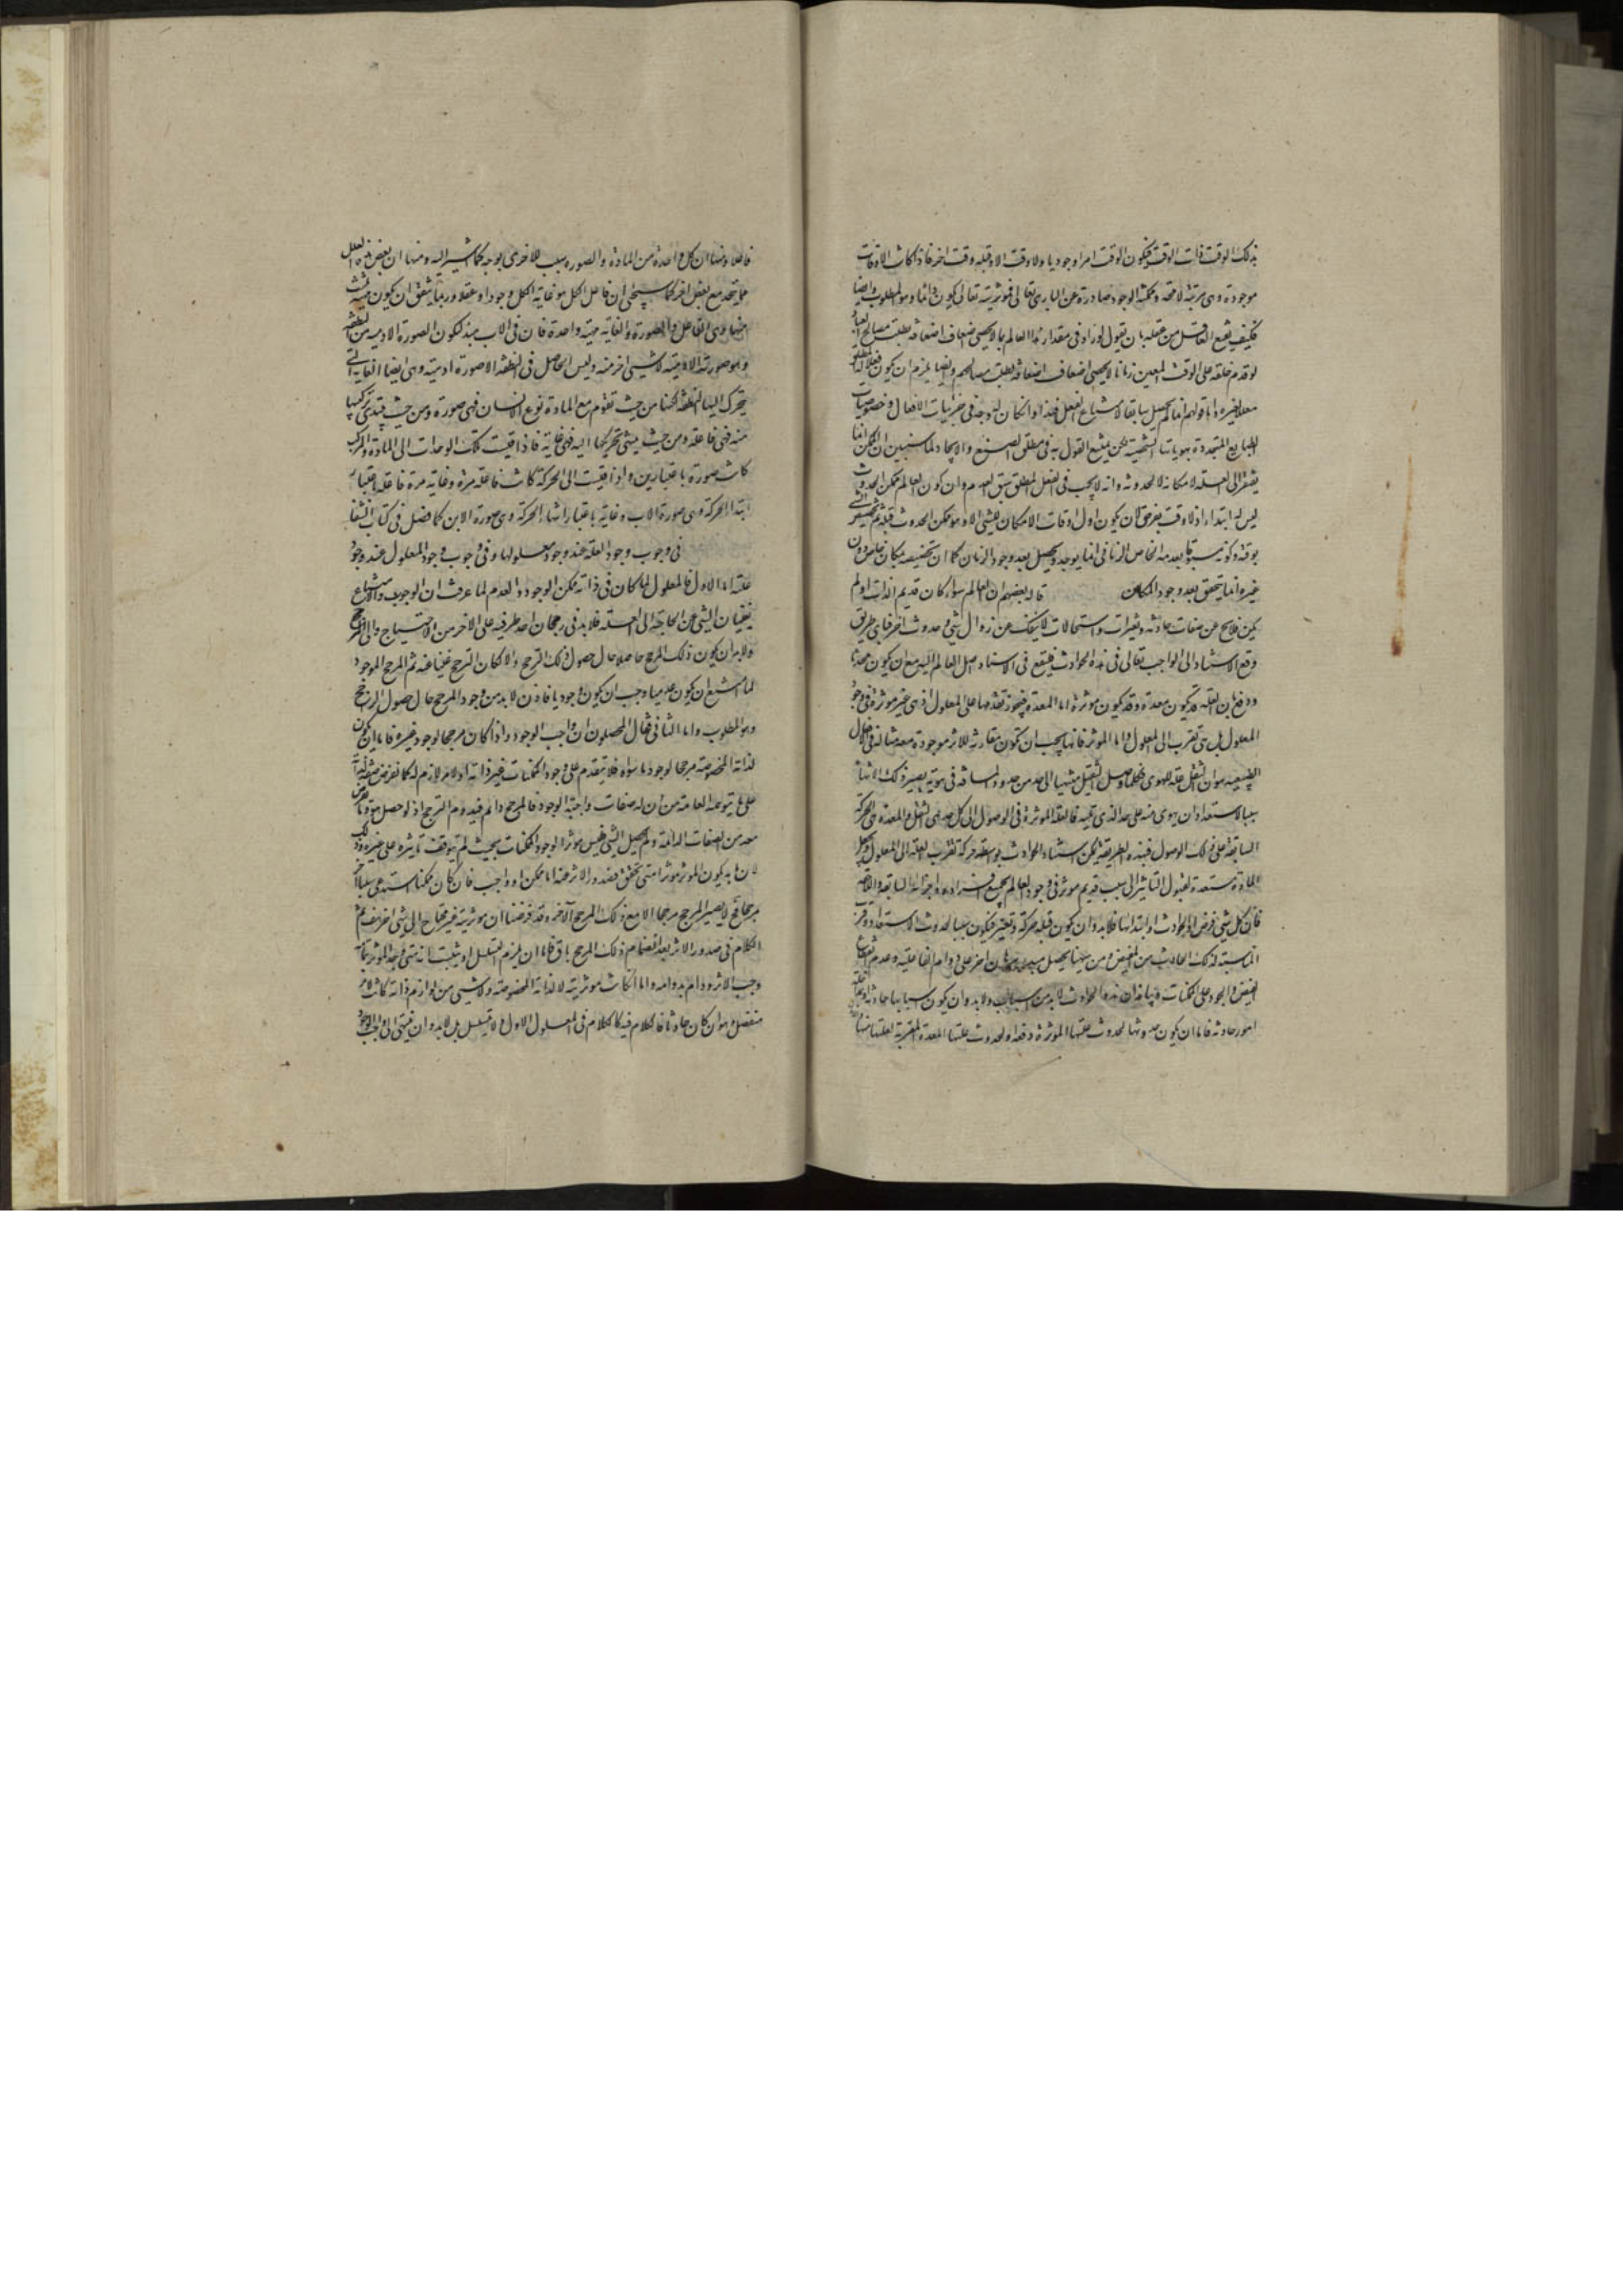 بذلك الوقت ذات الوقت فيكون الوقت امرا وجوديا ولا وقت الا وقبله وقت اخر فاذا كانت الاوقات
موجودة وهى مرتبة لاحقة وممكنة الوجود صادرة عن البارى تعالى فموثريته تعالى يكون دائما وهو المطلوب وايضا
فكيف يقنع العاقل من عقله بان يقول لو زاد فى مقدار هذا العالم بما لا يحصى ضعاف اضعافه بطلت مصالح العباد
لو قدم خلقه على الوقت المعين زمانا لا يحصى اضعاف اضعافه بطلت مصالحهم وايضا يلزم ان يكون فعله
معللا بغيره واما قولهم انما لم يحصل سابقا لامتناع الفعل فهذا وان كان له وجه فى جزئيات الافعال وخصوصيات
الطبايع المتجددة بهوياتها الشخصية لكن يمتنع القول به فى مطلق الصنع والايجاد لما سنبين ان الممكن انما
يفتقر الى العلة لامكانه لا لحدوثه وانه لا يجب فى الفعل المطلق سبق العدم وان كون العالم ممكن الحدوث
ليس له ابتداء اذ لا وقت يفرض لان يكون اول اوقات الامكان للشىء الا وهو ممكن الحدوث قبله ثم تخصيص الشىء
بوقته وكونه مسبوقا بعدمه الخاص الزمانى انما يوجد ويحصل بعد وجود الزمان كما ان تخصيصه بمكان خاص دون
غيره انما يتحقق بعد وجود المكان قال بعضهم ان العالم سواء كان قديم الذات او لم
يكن فلا يخ عن صفات حادثه وتغيرات واستحالات لا ينفك عن زوال شىء وحدوث اخر فباى طريق
وقع الاستناد الى الواجب تعالى فى هذه الحوادث فليقع فى الاسناد اصل العالم اليه مع ان يكون محدثا
ودفع بان العلة قد يكون معدة وقد يكون موثرة اما المعدة فيجوز تقدمها على المعلول اذ هى غير موثرة فى وجود
المعلول بل هى تقرب الى المعلول واما الموثرة فانها يجب ان تكون مقارنة للاثر موجودة معه مثاله فى الافعال
الطبيعيه هو ان الثقل علة للهوى فكلما وصل الثقيل منتهيا الى حد من حدود المسافة فى هويه يصير ذلك الانتهاء
سببا لاستعداد ان يهوى منه على حد الذى يليه فالعلة الموثرة فى الوصول الى كل حد هى الثقل والمعدة هى الحركة
السابقة على ذلك الوصول فبهذه الطريقة يمكن استناد الحوادث بواسطة حركة تقرب العلة الى المعلول ويجعل
المادة مستعدة لقبول التاثير الى سبب قديم موثر فى وجود العالم بجميع افراده واجزائه السابقة واللاحقة
فان كل شىء فرض اول الحوادث وابتدائها فلا بد وان يكون قبله حركة وتغير فيكون سببا لحدوث الاستعداد وقرب
المناسبة لذلك الحادث من المفيض ومن هيهنا يحصل برهان اخر على دوام الفاعلية وعدم انقطاع
الفيض والجود على الممكنات وبيانه ان هذه الحوادث لا بد من اسباب ولا بد وان يكون اسبابها حادثه
امور حادثه فاما ان يكون حدوثها لحدوث علتها الموثرة دفعة او لحدوث علتها المعدة المقربة لعلتها منها
فاعلا ومنها ان كل واحدة من المادة والصورة سبب للاخرى بوجه كما اشير اليه ومنها ان بعض هذه العلل
مما يتحد مع بعض اخر كما سيجىء ان فاعل الكل هو غاية الكل وجودا وعقلا وربما يتفق ان يكون ثلث
منها وهى الفاعل والصورة والغاية مهية واحدة فان فى الاب مبدء لتكون الصورة الادميه من النطفه
وهو صورته الادمية لا شىء اخر منه وليس الحاصل فى النطفة الا صورة ادمية وهى ايضا الغاية التى
يتحرك اليها النطفة لكنها من حيث تقوم مع المادة نوع الانسان فهى صورة ومن حيث يبتدى تركيبها
منه فهى فاعلة ومن حيث ينتهى تحريكها اليه فهى غاية فاذا قيست تلك الوحدات الى المادة والمركب
كانت صورة باعتبارين واذا قيست الى الحركة كانت فاعلة مرة وغاية مرة فاعله باعتبار
ابتداء الحركة وهى صورة الاب وغاية باعتبار انتهاء الحركة وهى صورة الابن كما فصل فى كتاب الشفا
فى وجوب وجود العلة عند وجود معلولها وفى وجوب وجود المعلول عند وجود
علته اما الاول فالمعلول لما كان فى ذاته ممكن الوجود والعدم لما عرفت ان الوجوب والامتناع
يغنيان الشىء عن الحاجة الى العلة فلا بد فى رجحان احد طرفيه على الاخر من الاحتياج الى المرجح
ولا بد ان يكون ذلك المرجح حاصلا حال حصول ذلك الترجح والا لكان الترجح غنيا عنه ثم المرجح للوجود
لما امتنع ان يكون عدميا وجب ان يكون وجوديا فاذن لا بد من وجود المرجح حال حصول الراجح
وهو المطلوب واما الثانى فقال المحصلون ان واجب الوجود اذا كان مرجحا لوجود غيره فاما ان يكون
لذاته المخصوصة مرجحا لوجود ما سواه فلا يتقدم على وجود الممكنات غير ذاته او لامر لازم له كما نفرض صفة له
على ما يتوهمه العامة من ان له صفات واجبة الوجود فالمرجح دائم فيدوم الترجح اذ لو حصل هو وما نفرض
معه من الصفات الدائمة ولم يحصل الشىء فليس موثرا لوجود الممكنات بحيث لم يتوقف تاثيره على غيره وذلك
لان ما به يكون الموثر موثرا متى تحقق فصدور الاثر عنه اما ممكن او واجب فان كان ممكنا استدعى سببا اخر
مرجحا فح لا يصير المرجح مرجحا الا مع ذلك المرجح الاخر وقد فرضنا ان موثريته غير محتاج الى شىء اخر هف ثم
الكلام فى صدور الاثر بعد انضمام ذلك المرجح باق فاما ان يلزم التسلسل او يثبت انه متى وجد الموثر بتمامه
وجب الاثر ودام بدوامه واما ان كانت موثريته لا لذاته المخصوصة ولا شىء من لوازم ذاته كانت لامر
منفصل وهو ان كان حادثا فالكلام فيه كالكلام فى المعلول الاول ولا تسلسل بل لا بد وان ينتهى الى واجب الوجود